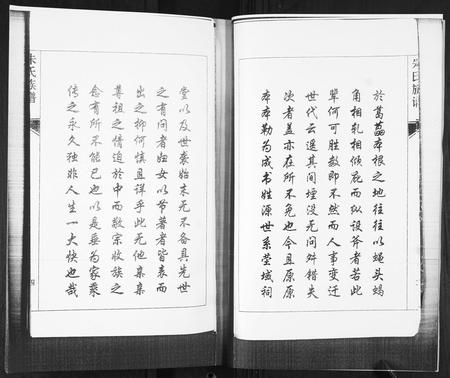 朱氏族谱
於葛藟本根之地往往以蝇头蝎
角相轧相倾庇而纵设斧者若此
辈何可胜数即不然而人事变迁
世代云遥其间堙没无问舛错失
次者盖亦在所不免也今且原原
本本勒为成书姓源世系茔域祠
堂以及世袭始末无不备具先世
之有闻者妇女以节著者皆表而
出之抑何慎且详乎此无他集集
尊祖之情迫於中而敬宗收族之
念有所不能已也以是垂为家乘
传之永久独非人生一大快也哉
朱氏族谱
四